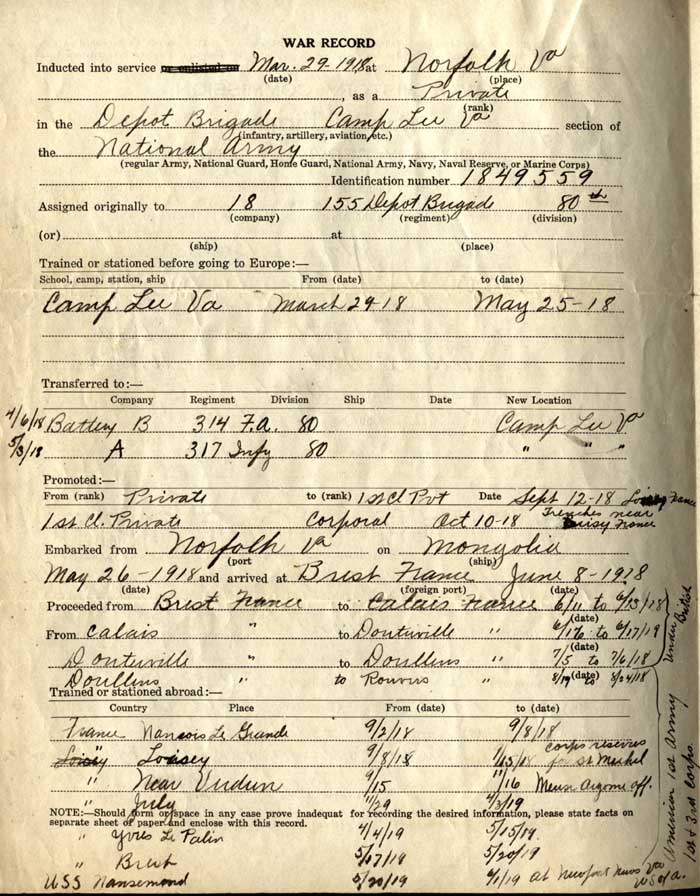 WAR RECORD
Inducted into service or enlisted on Mar. 29-1918 at Norfolk Va
(date) (place)
as a Private
(rank)
in the Depot Brigade Camp Lee Va section of
(infantry, artillery, aviation, etc.)
the National Army
(regular Army, National Guard, Home Guard, National Army, Navy, Naval Reserve, or Marine Corps)
Identification number 1849559
Assigned originally to 18 155 Depot Brigade 80th
(company) (regiment) (division)
(or) at
(ship) (place)
Trained or stationed before going to Europe:—
School, camp, station, ship From (date) to (date)
Camp Lee Va March 29-18 May 25-18
Transferred to:—
Company Regiment Division Ship Date New Location
4/6/18 Battery B 314 F.A. 80 Camp Lee Va
5/3/18 A 317 Infy 80 " " "
Promoted:—
From (rank) Private to (rank) 1st Cl Pvt Date Sept 12-18 France
1st Cl. Private Corporal Oct 10-18 Trenches near France
Embarked from Norfolk Va on Mongolia
(port (ship)
May 26-1918 and arrived at Brest France June 8-1918
(date) (foreign port) (date)
Proceeded from Brest France to Calais France 6/11 to 6/13/18
(date)
From Calais to Donterville " 6/16 to 6/17/19
(date)
Donterville " to Doullens " 7/5 to 7/6/18
Doullens " to Rouvers " 8/19 to 8/24/18
(date)
Trained or stationed abroad:—
Country Place From (date) to (date)
France Nancois Le Grande 9/2/18 9/8/18
Loisey 9/8/18 corps reserves for St Meihel
" Near Verdun 9/15 11/16 Meuse Argonne off.
" July 11/29 4/3/19
NOTE:—Should form or space in any case prove inadequate for recording the desired information, please state facts on
separate sheet of paper and enclose with this record.
" Yvres Le Palin 4/4/19 5/15/19.
" Brest 5/17/18 5/20/19
USS Nansemond 5/20/19 6/1/19 at Newport News Va
U.S. of A.
under British
American 1st Army
1st & 3rd Corps.